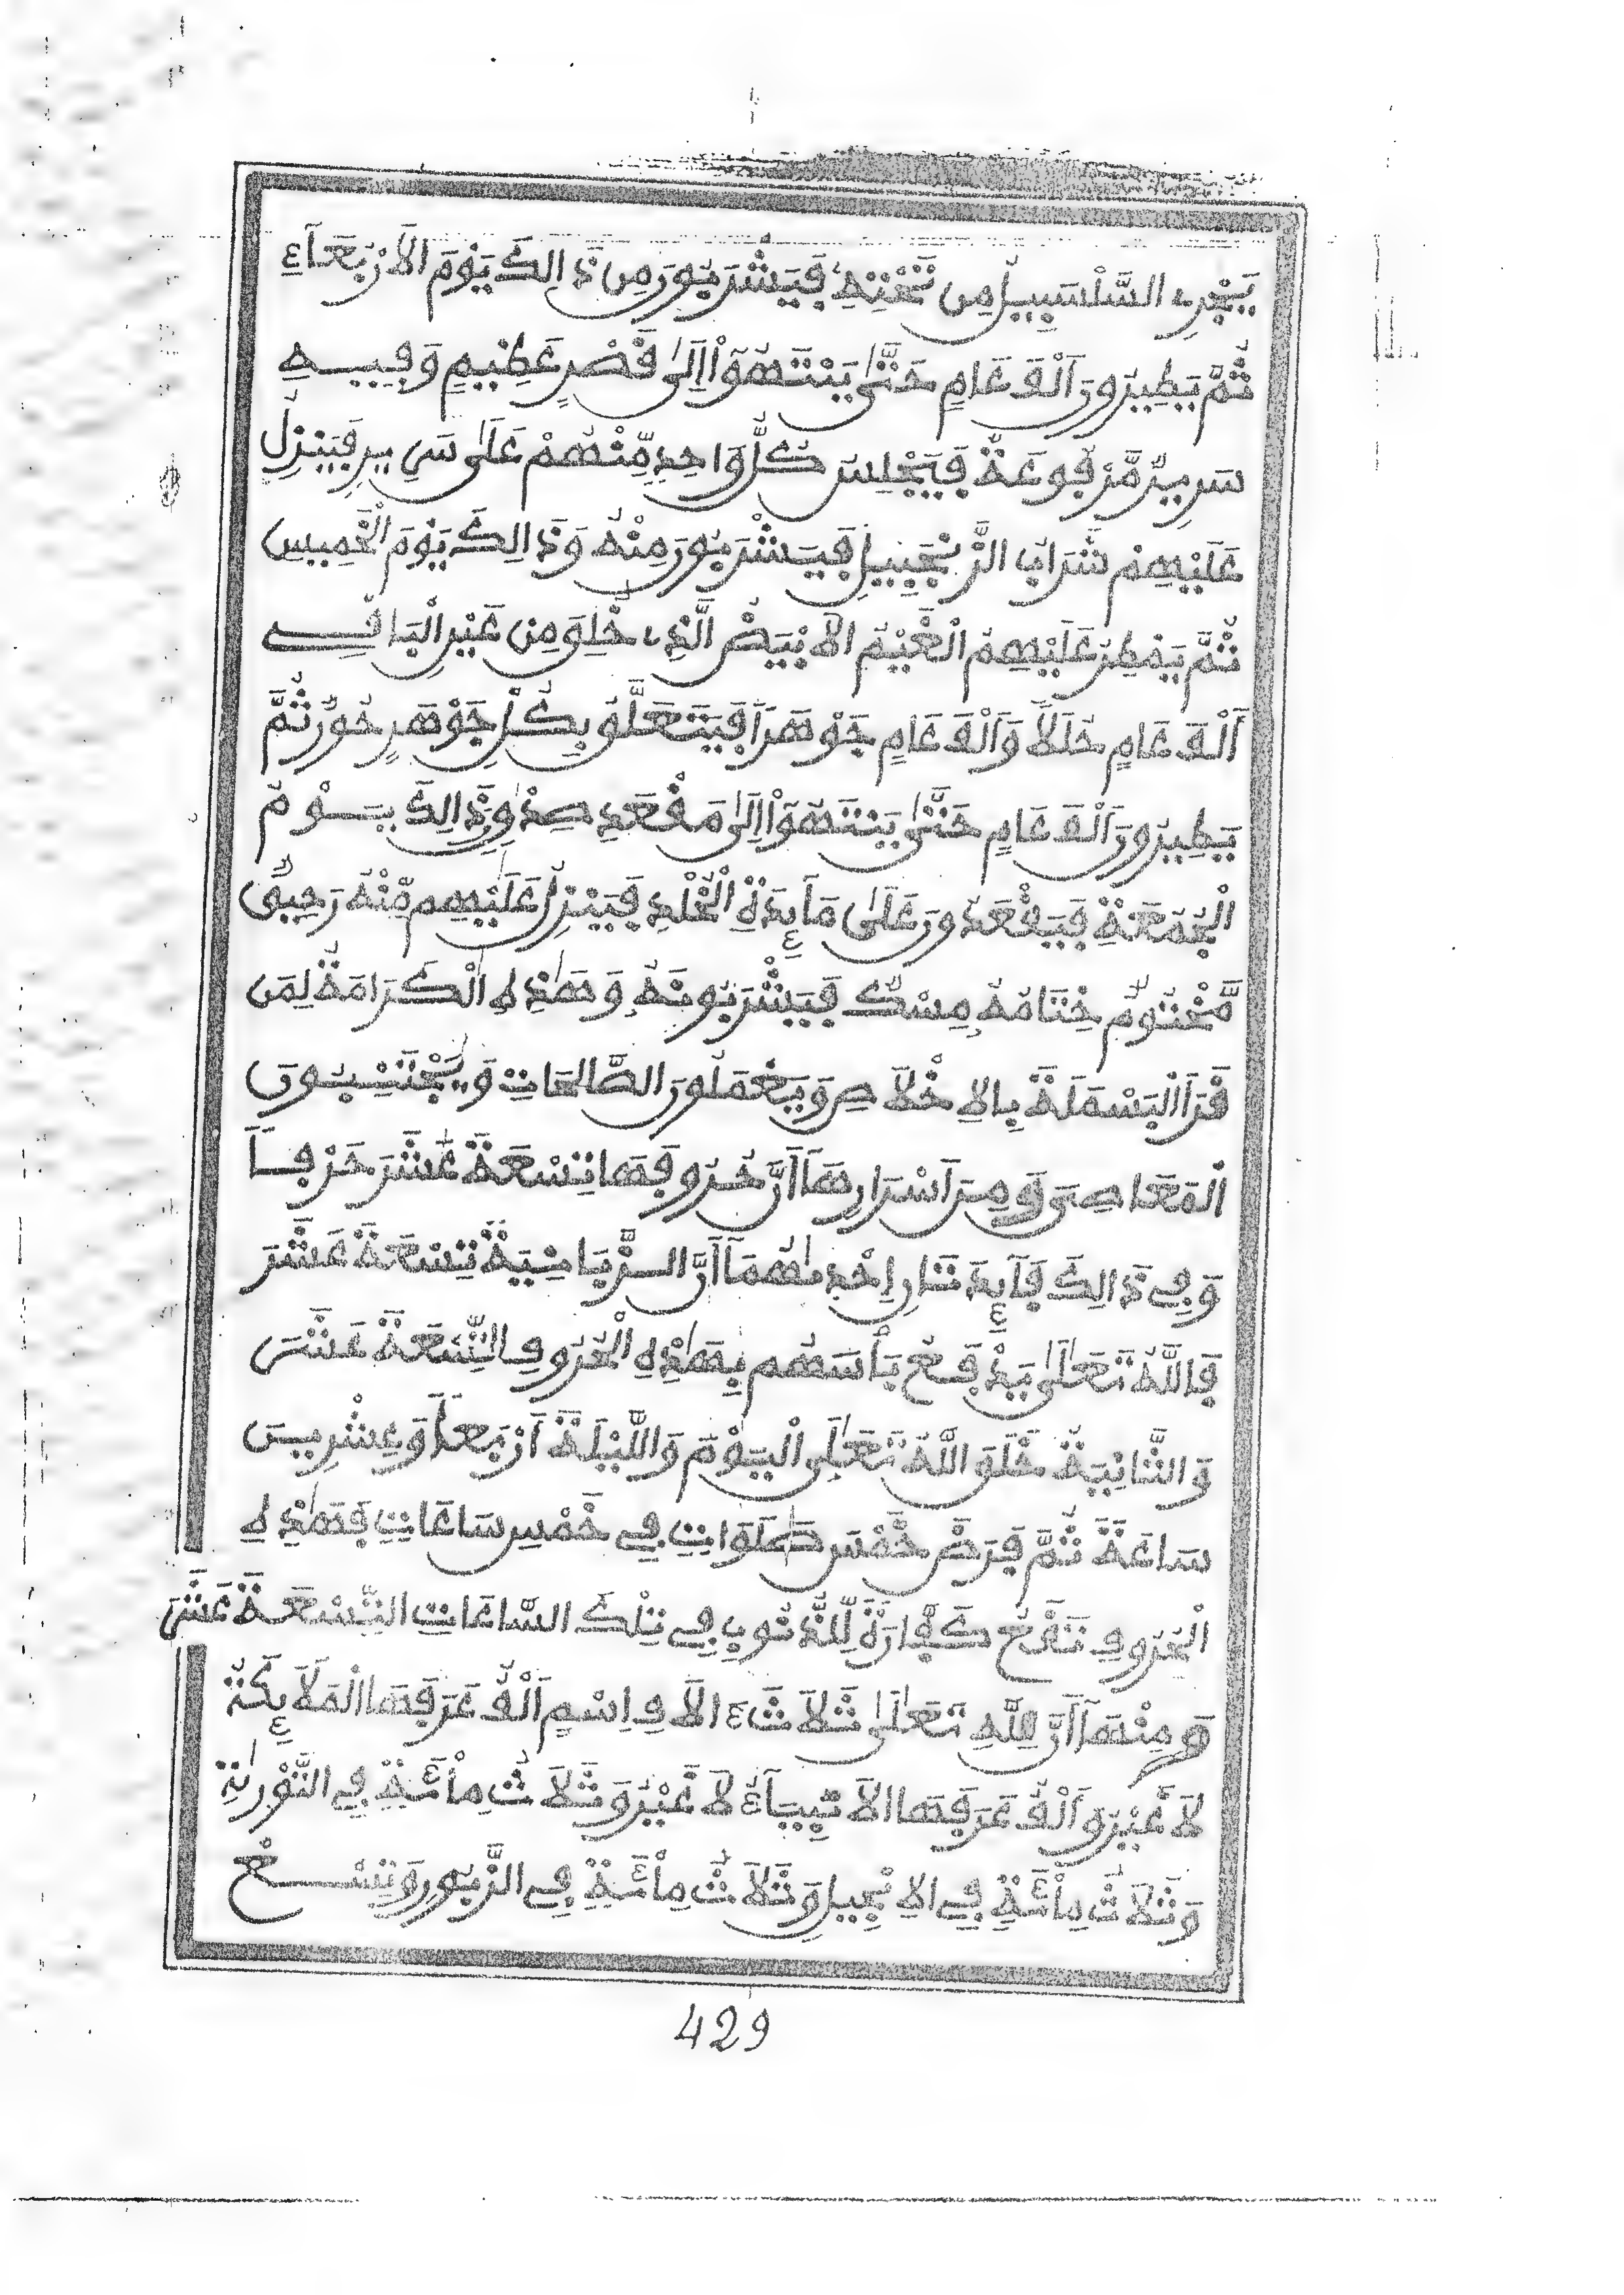 يَجْرِے السَّلْسَبِيلُ مِن تَحْتِهِۦ فَيَشْرَبُونَ مِن ذَالِكَ يَوْمَ الْأَرْبَعَآءِ
ثُمَّ يَطِيرُونَ أَلْفَ عَامٍ حَتَّىٰ يَنتَهُوٓاْ إِلَىٰ قَصْرٍ عَظِيمٍ وَفِيهِ
سَرِيرٌ مَّرْفُوعَةٌ فَيَجْلِسَ كُلُّ وَاحِدٍ مِّنْهُمْ عَلَىٰ سَرِيرٍ فَيَنزِلُ
عَلَيْهِمْ شَرَابُ الزَّنْجَبِيلِ فَيَشْرَبُونَ مِنْهُ وَذَالِكَ يَوْمَ الْخَمِيسِ
ثُمَّ يَمْطِرُ عَلَيْهِمُ الْغَيْمُ الْأَبْيَضُ الَّذِے خُلِقَ مِنْ غَيْرِ الْبَاقِے
أَلْفَ عَامٍ حُلَلاً وَأَلْفَ عَامٍ جَوْهَراً فَيَتَعَلَّقُ بِكُلِّ جَوْهَرٍ حُورٌ ثُمَّ
يَطِيرُونَ أَلْفَ عَامٍ حَتَّىٰ يَنتَهُوٓاْ إِلَىٰ مَقْعَدِ صِدْقٍ وَذَالِكَ يَوْمُ
الْجُمُعَةِ فَيَقْعَدُونَ عَلَىٰ مَآئِدَةِ الْخُلْدِ فَيَنزِلُ عَلَيْهِم مِّنْهُ رَحِيقٌ
مَّخْتُومٌ خِتَامُهُۥ مِسْكٌ فَيَشْرَبُونَهُۥ وَهَٰذِهِ الْكَرَامَةُ لِمَن
قَرَأَ الْبَسْمَلَةَ بِالْإِخْلَاصِ وَيَعْمَلُونَ الصَّالِحَاتِ وَيَجْتَنِبُونَ
الْمَعَاصِىَ وَمِنَ أَسْرَارِهَآ أَنَّ حُرُوفَهَا تِسْعَةَ عَشَرَ حَرْفاً
وَفِى ذَالِكَ فَآئِدَتَانِ إِحْدَىٰهُمَآ أَنَّ الزَّبَانِيَةَ تِسْعَةَ عَشَرَ
فَاللَّهُ تَعَالَىٰ يَدْفَعُ بَأْسَهُم بِهَٰذِهِ الْحُرُوفِ التِّسْعَةَ عَشَرَ
وَالثَّانِيَةُ خَلَقَ اللَّهُ تَعَالَى الْيَوْمَ وَاللَّيْلَةَ أَرْبَعاً وَعِشْرِينَ
سَاعَةً ثُمَّ فَرَضَ خَمْسَ صَلَوَاتٍ فِى خَمْسِ سَاعَاتٍ فَهَٰذِهِ
الْحُرُوفِ تَقَعُ كَفَّارَةً لِّلذُّنُوبِ فِى تِلْكَ السَّاعَاتِ التِّسْعَةَ عَشَرَ
وَمِنْهَآ أَنَّ لِلَّهِ تَعَالَىٰ ثَلَاثَةَ ءَالَافِ اِسْمٍ أَلْفٌ عَرَفَهَا الْمَلَآئِكَةُ
لَا غَيْرُ وَأَلْفٌ عَرَفَهَا الْأَنبِيَآءُ لَا غَيْرُ وَثَلَاثُ مِاْئَةٍ فِى التَّوْرَىٰةِ
وَثَلَاثُ مِاْئَةٍ فِى الْإِنجِيلِ وَثَلَاثُ مِاْئَةٍ فِى الزَّبُورِ وَتِسْعٌ
429